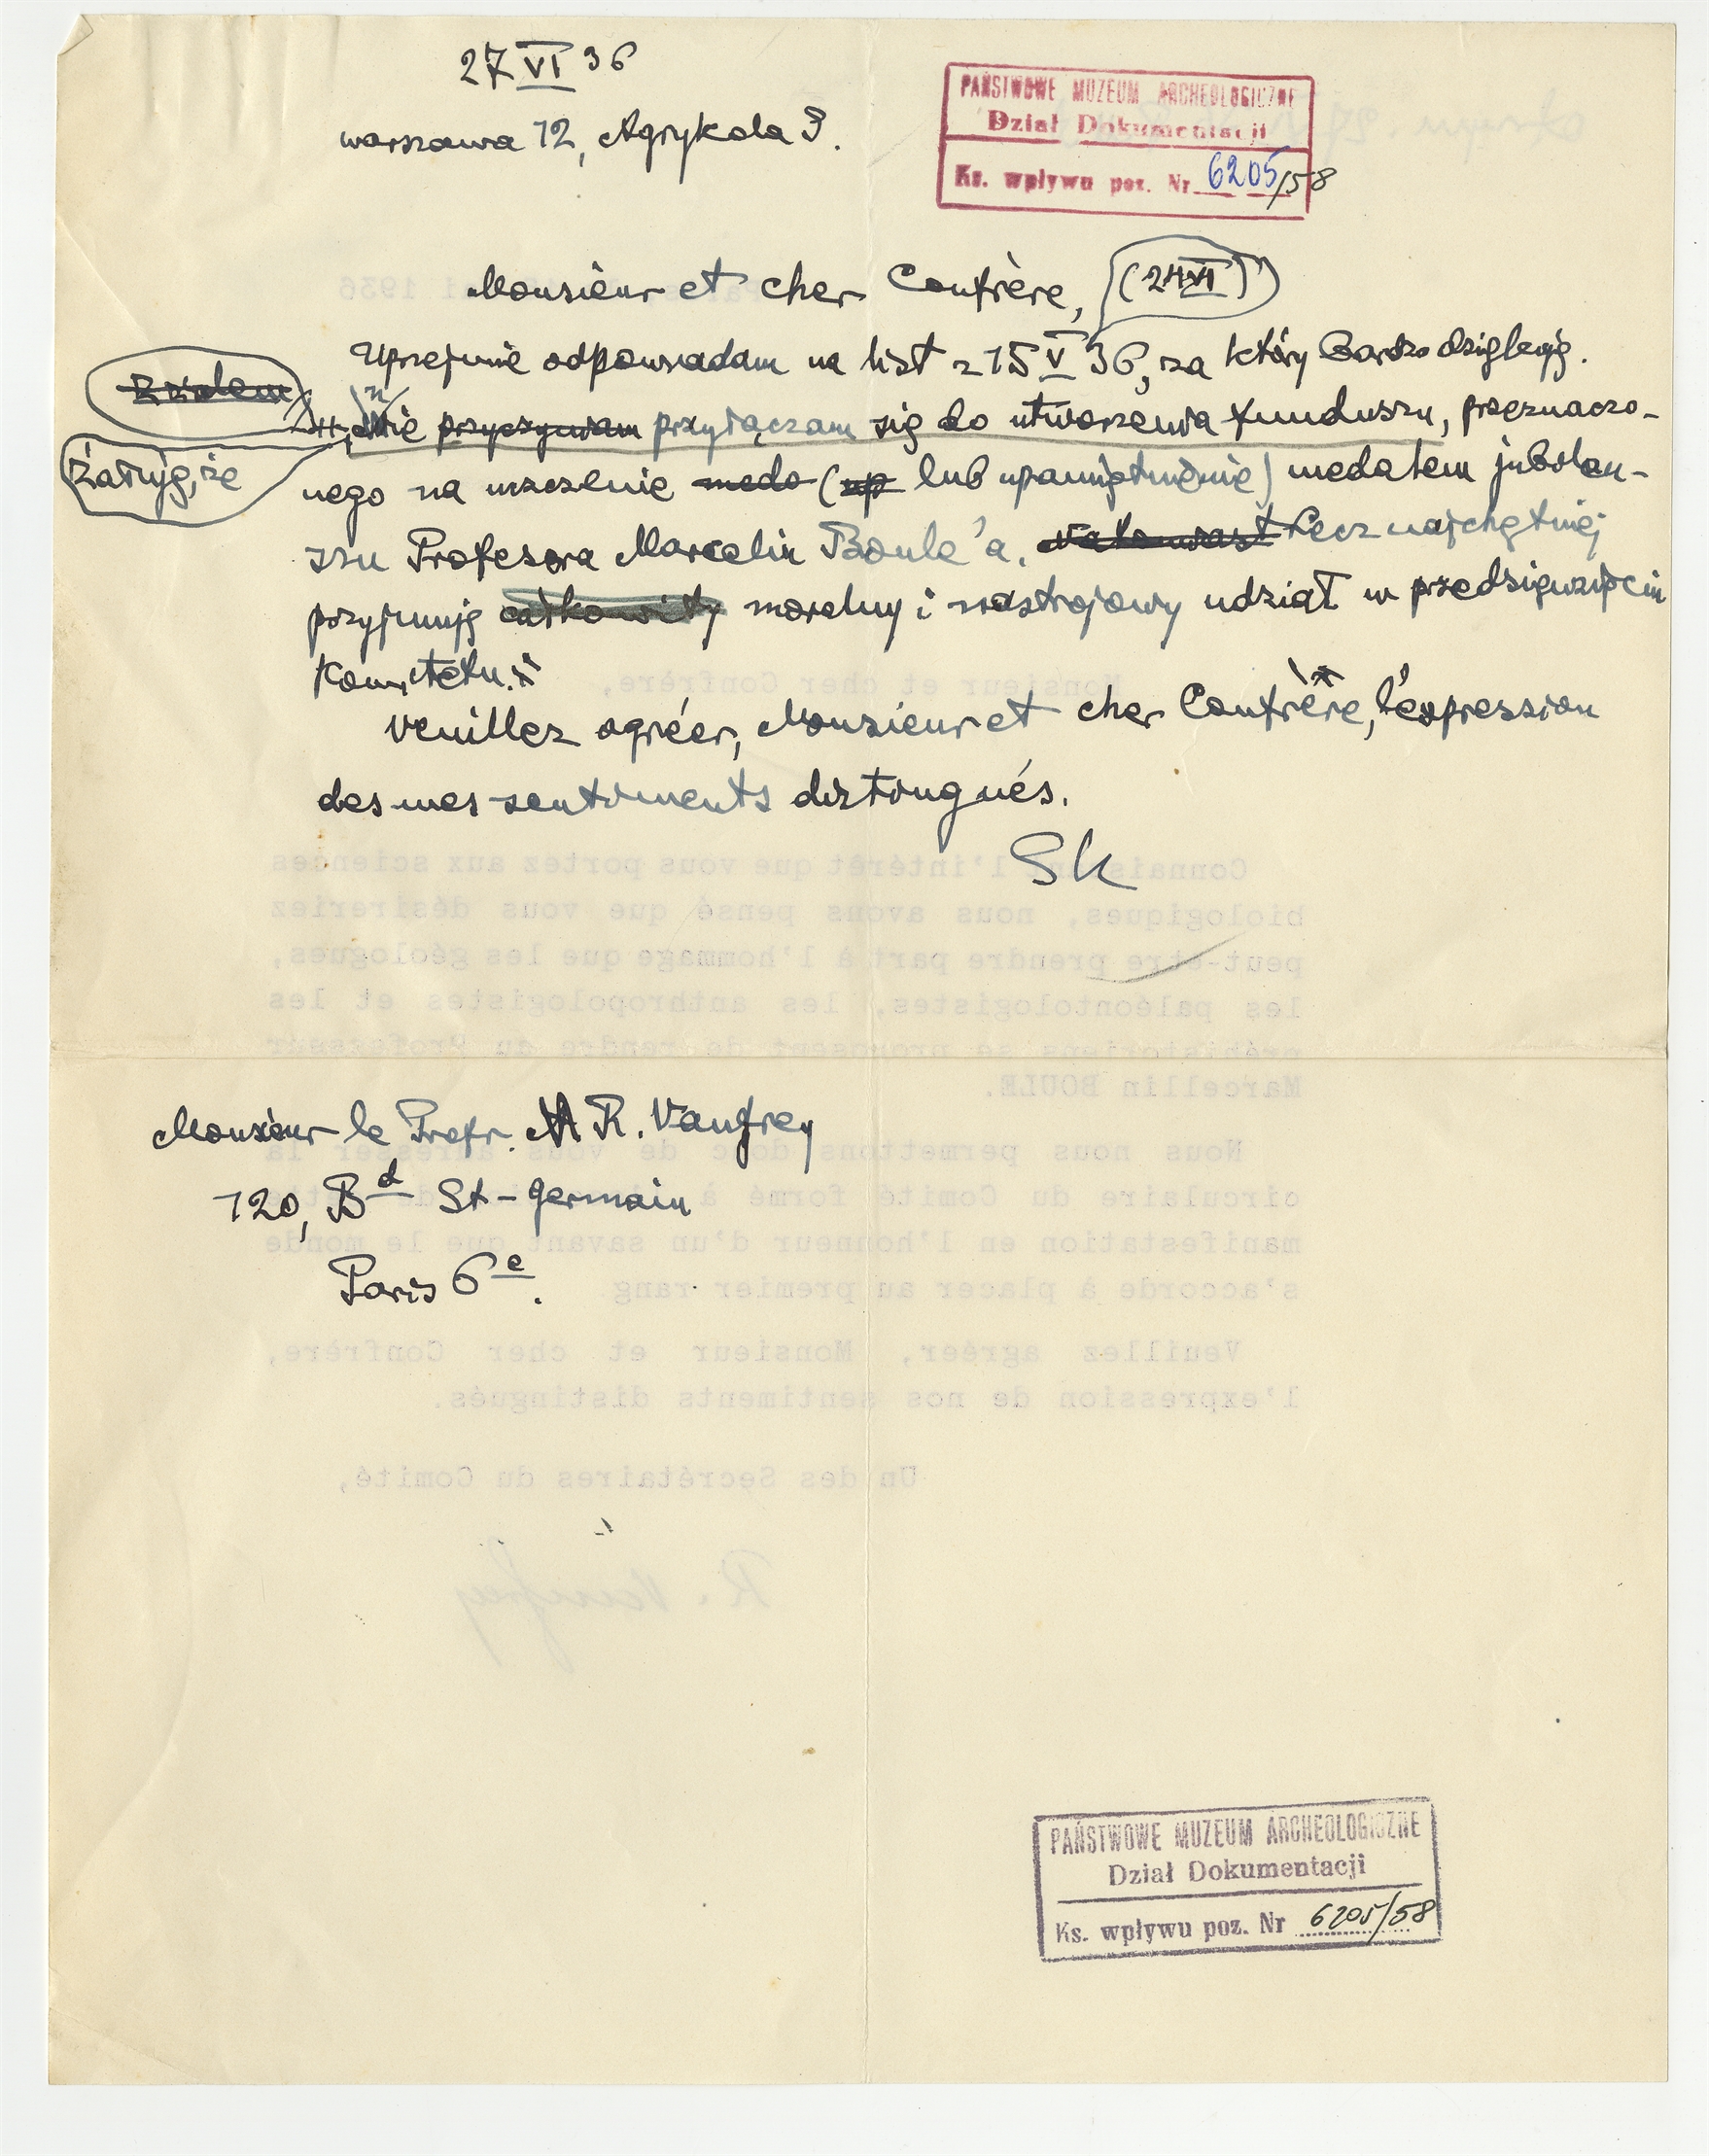 27 VI 36
Warszawa 12, Agrykola 9.
PAŃSTWOWE MUZEUM ARCHEOLOGICZNE
Dział Dokumentacji
Ks. wpływu poz. Nr 6205/58
Monsieur et cher Confrère, (24 VI)
Uprzejmie odpowiadam na list z 15 V 36, za który bardzo dziękuję.
z żalem
Żałuję, że
nie przyczyniam przyłączam się do utworzenia funduszu, przeznaczo-
nego na uczczenie meda (up lub upamiętnienie) medalem jubolau-
szu Profesora Marcelin Boule'a, natomiast lecz najchętniej
przyjmuję całkowity moralny i nastrojowy udział w przedsięwzięciu
Komitetu.
Veuillez agréer, Monsieur et cher Confrère, l'expression
des mes sentiments distingués.
Sk
Monsieur le Profr. R. Vaufrey
120, Bd St-Germain
Paris 6e.
Monsieur et cher Confrère,
Connaissant l'intérêt que vous portez aux sciences
biologiques, nous avons pensé que vous désireriez
peut-être prendre part à l'hommage que les géologues,
les paléontologistes, les anthropologistes et les
préhistoriens se proposent de rendre au Professeur
Marcellin BOULE.
Nous nous permettons donc de vous adresser la
circulaire du Comité formé à
manifestation en l'honneur d'un savant que le monde
s'accorde à placer au premier rang.
Veuillez agréer, Monsieur et cher Confrère,
l'expression de nos sentiments distingués.
Un des Secrétaires du Comité,
R. Vaufrey
PAŃSTWOWE MUZEUM ARCHEOLOGICZNE
Dział Dokumentacji
Ks. wpływu poz. Nr 6205/58